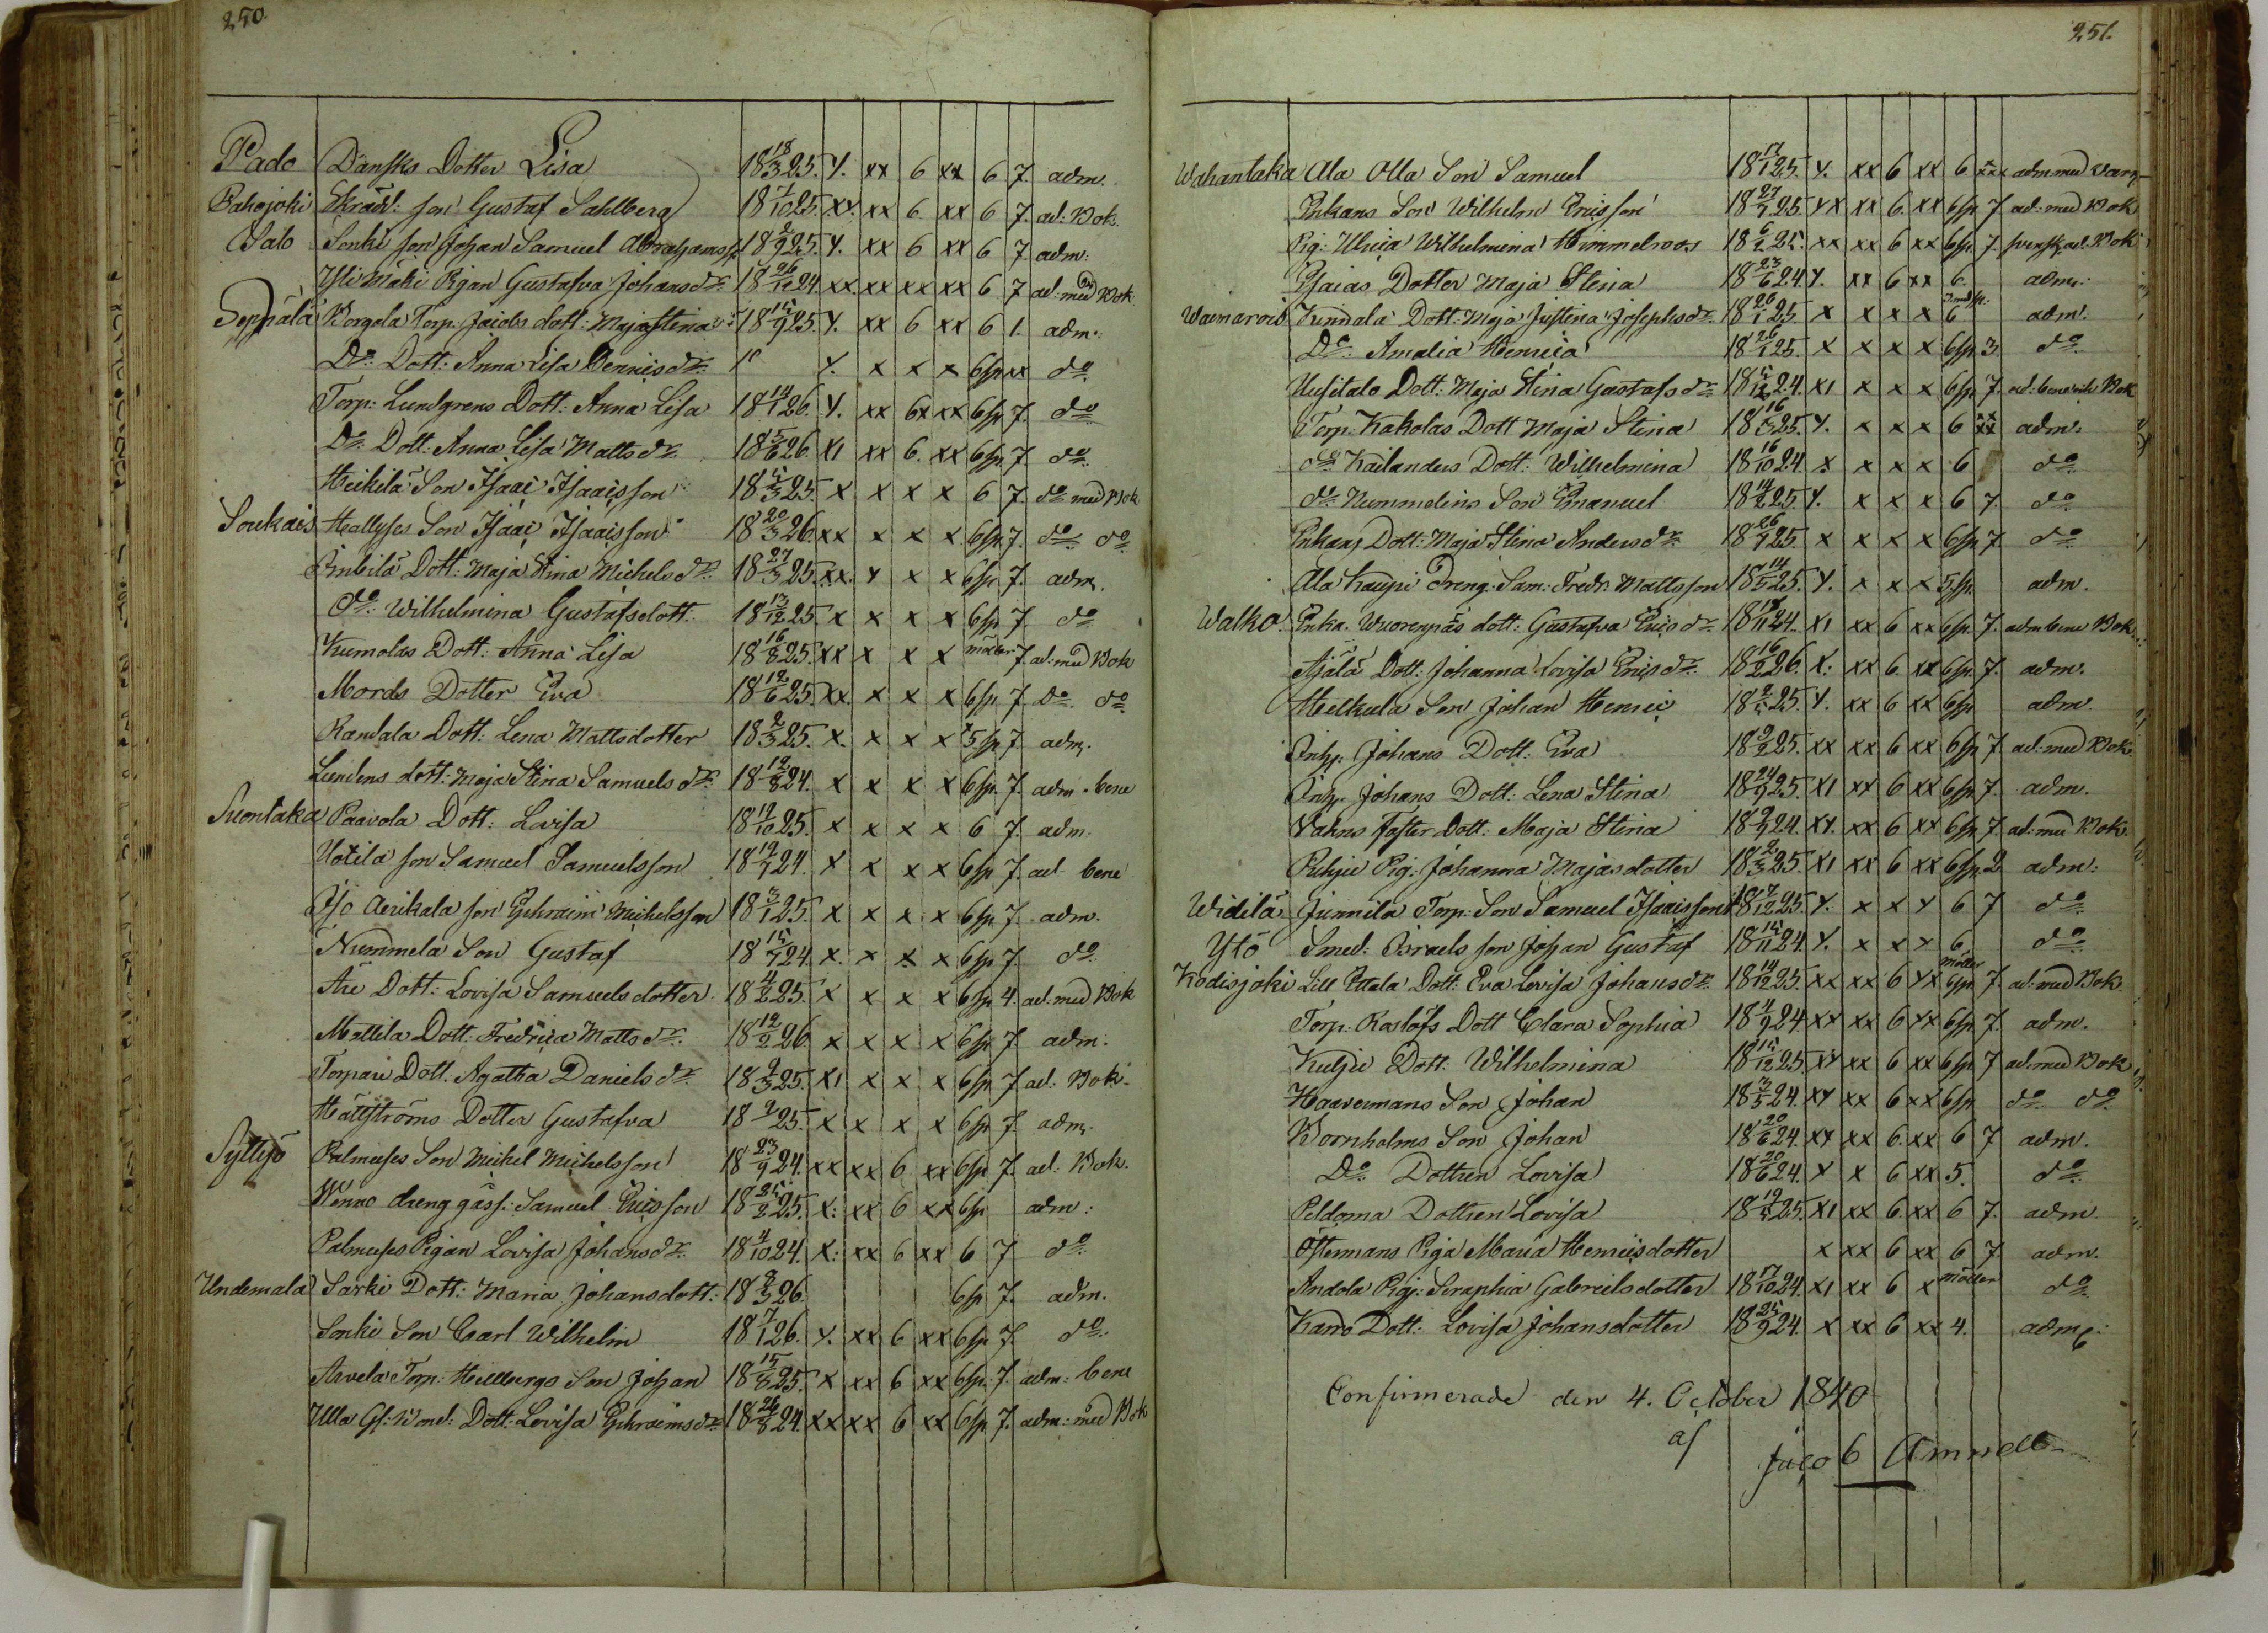 250.
Pado Dansks Dotter Lisa 18 18/3 25. Y. xx 6 xx 6 7. adm.
Pahojoki Skräd: son Gustaf Sahlberg 18 /10 25. XY. xx 6. xx 6 7. ad. Bok.
Salo Sonki son Johan Samuel Abrahamss: 18 2/9 25. Y. xx 6 xx 6 7 adm:
Yli Mäki Pigan Gustafva Johansdr 18 26/12 24. xx. xx xx xx 6 7 ad: med Bok.
Seppälä Borgola Torp. Jacobs dott: Maja Stina 18 15/9 25 Y. xx 6 xx 6 1. adm:
Do Dott: Anna Lisa Dennisdr Y. x x x 6sp xx do
Torp: Lundgrens Dott: Anna Lisa 18 14/1 26. Y. xx 6x xx 6sp 7. do
Do Dott: Anna Lisa Mattsdr 18 5/6 26. XI xx 6. xx 6sp. 7. do
Heikilä Son Isaac Isaacsson 18 5/3 25. x x x x 6 7. do med Bok
Soukais Hallyses Son Isaac Isaacsson 18 20/3 26. xx x x x 6sp. 7. do do
Anbila Dott: Maja Stina Michelsdr 18 27/3 25. xx. x x x 6sp 7. adm.
do: Wilhelmina Gustafsdott. 18 13/12 25 x x x x 6sp 7. do
Kumolas Dott: Anna Lisa 18 16/8 25. xx x x x möller 7. ad: med Bok
Mords Dotter Eva 18 12/6 25 xx. x x x 6sp. 7 Do do
Randala Dott: Lena Mattsdotter 18 2/3 25. x. x x x 5.sp 7 adm.
Lundens dott: Maja Stina Samuelsdr 18 12/8 24. x x x x 6sp. 7. adm. bene
Suontaka Paavola Dott: Lovisa 18 19/10 25. x x x x 6 7. adm.
Uotila son Samuel Samuelsson 18 19/7 24. x x x x 6sp 7. ad. bene
Iso Aerikala son Ephraim Michelsson 18 3/1 25. x x x x 6sp. 7. adm.
Nummela Son Gustaf 18 15/7 24 x. x x x 6sp 7. do
Are Dott: Lovisa Samuelsdotter. 18 4/2 25. x x x x 6sp 4. ad. med Bok
Mattila Dott: Fredrica Mattsdr. 18 12/2 26 x x x x 6sp 7. adm.
Torpari Dott. Agatha Danielsdr 18 9/3 25. XI x x x 6sp 7 ad: Bok.
Hättströms Dotter Gustafva 18 25. x x x x 6sp 7. adm.
Syttyö Palmuses Son Michel Michelsson 18 23/9 24. xx xx 6 xx 6sp 7. ad: Bok.
Winno dreng gåss: Samuel Ericsson 18 25/2 25. x: xx 6 xx 6sp adm:
Palmuses Pigan Lovisa Johansdr. 18 4/10 24. x: xx 6 xx 6 7 do
Undemala Sarki Dott: Maria Johansdott: 18 8/3 26. 6sp 7. adm.
Sonki Son Carl Wilhelm 18 7/1 26. Y. xx 6 xx 6sp 7. do
Arvela Torp: Hellbergs Son Johan 18 15/8 25. x xx 6 xx 6sp. 7. adm: bene
Ulla Gl: Wärd: Dott: Lovisa Ephraimsdr 18 26/8 24. xx xx 6 xx 6sp 7. adm: med Bok
251.
Wahantaka Ala Olla Son Samuel 18 17/1 25. Y. xx 6 xx 6 xxx adm med varn
Enkans Son Wilhelm Ericsson 18 27/7 25. YX xx 6. xx 6sp. 7 ad: med Bok
Pig: Ulrica Wilhelmina Himmelroos 18 6/2 25. xx xx 6 xx 6sp. 7. svensk ad. Bok
Esaias Dotter Maja Stina 18 23/6 24. Y. xx 6 xx 6. adm:
Wainarois Kunnala Dott: Maja Justina Josephsdr. 18 26/1 25 x x x x 6 adm.
Do Amalia Henrica 18 26/1 25. x x x x 6sp. 3. do
Uusitalo Dott: Maja Stina Gustafsdr 18 5/12 24. XI x x x 6sp 7. ad: bene och Bok
Torp: Kakolas Dott Maja Stina 18 16/3 25. Y. x x x 6 xx xx adm:
do Kailanders Dott: Wilhelmina 18 16/10 24. x x x x 6 do
do Nummelins Son Emanuel 18 14/2 25. Y. x x x 6 7. do
Enkans Dott: Maja Stina Andersdr 18 26/7 25. x x x x 6sp 7. do
Ala Kaupi Dreng. Sam: Fredr: Mattsson 18 14/5 25. Y. x x x 5sp. adm.
Walko. Enka. Wuorenpäs dott: Gustafva Ericsdr 18 18/11 24. XI xx 6 xx 6sp 7. adm bene Bok
Äjälä Dott: Johanna Lovisa Ericsdr 18 16/2 26. x: xx 6. xx 6sp. 7. adm.
Heikula Son Johan Henric 18 2/5 25. Y. xx 6 xx 6sp adm.
Enk. Johans Dott: Eva 18 9/2 25. xx xx 6 xx 6sp 7. ad: med Bok.
Enk. Johans Dott: Lena Stina 18 24/9 25. XI xx 6 xx 6sp 7. adm.
Vahns Foster Dott: Maja Stina 18 9/9 24. XY. xx 6 xx 6sp. 7. ad: med Bok.
Puhju Pig: Johanna Majasdotter 18 2/3 25. XI xx 6 xx 6sp. 2 adm:
Widilä Junnila Torp: Son Samuel Isaacsson 18 17/12 25. Y. x x Y 6 7 do
Ytö Smed: Israels son Johan Gustaf 18 15/11 24 Y. x x x 6. do
Kodisjoki Lill Ettala Dott: Eva Lovisa Johansdr. 18 14/12 25. xx xx 6 YX möller 6sp. 7. ad: med Bok.
Torp: Raslöfs Dott Clara Sophia 18 4/9 24 xx xx 6 YX 6sp 7. adm.
Kuljo Dott: Wilhelmina 18 15/12 25. XY xx 6 xx 6sp 7 ad: med Bok
Haavermans Son Johan 18 3/5 24 XY xx 6 xx 6sp do do
Bornholms Son Johan 18 20/6 24. XY xx 6. xx 6 7 adm.
Do Dottren Lovisa 18 20/6 24. Y x 6 xx 5. do
Peldoma Dottren Lovisa 18 12/5 25. XI xx 6 xx 6 7. adm.
Östermans Piga Maria Henricsdotter x xx 6 xx 6 7. adm.
Andola Pig: Seraphia Gabrielsdotter 18 17/10 24. XI xx 6 x möller do
Kardo Dott: Lovisa Johansdotter 18 25/9 24. x xx 6 xx 4. adm:
Confirmerade den 4. October 1840
af
Jacob Amnell